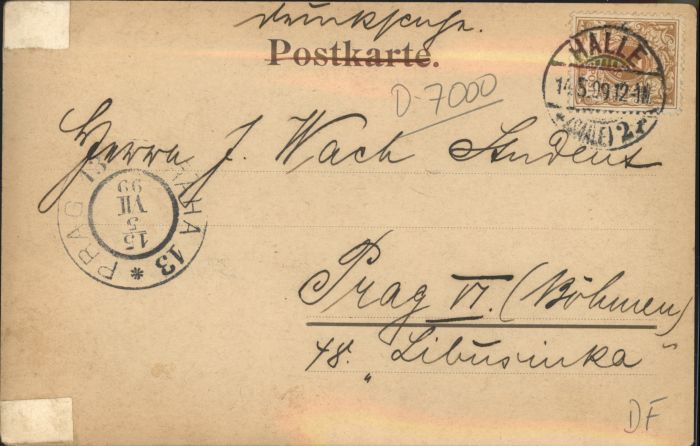 Drucksache.
Postkarte.
HALLE
14.5.99.12-1N.
*(SAALE)2r
D-7000
Herrn J. Wach Student
PRAG 13 PRAHA 13 *
15
5
VII
99
Prag VI. (Böhmen)
48. „Libusinka“
DF